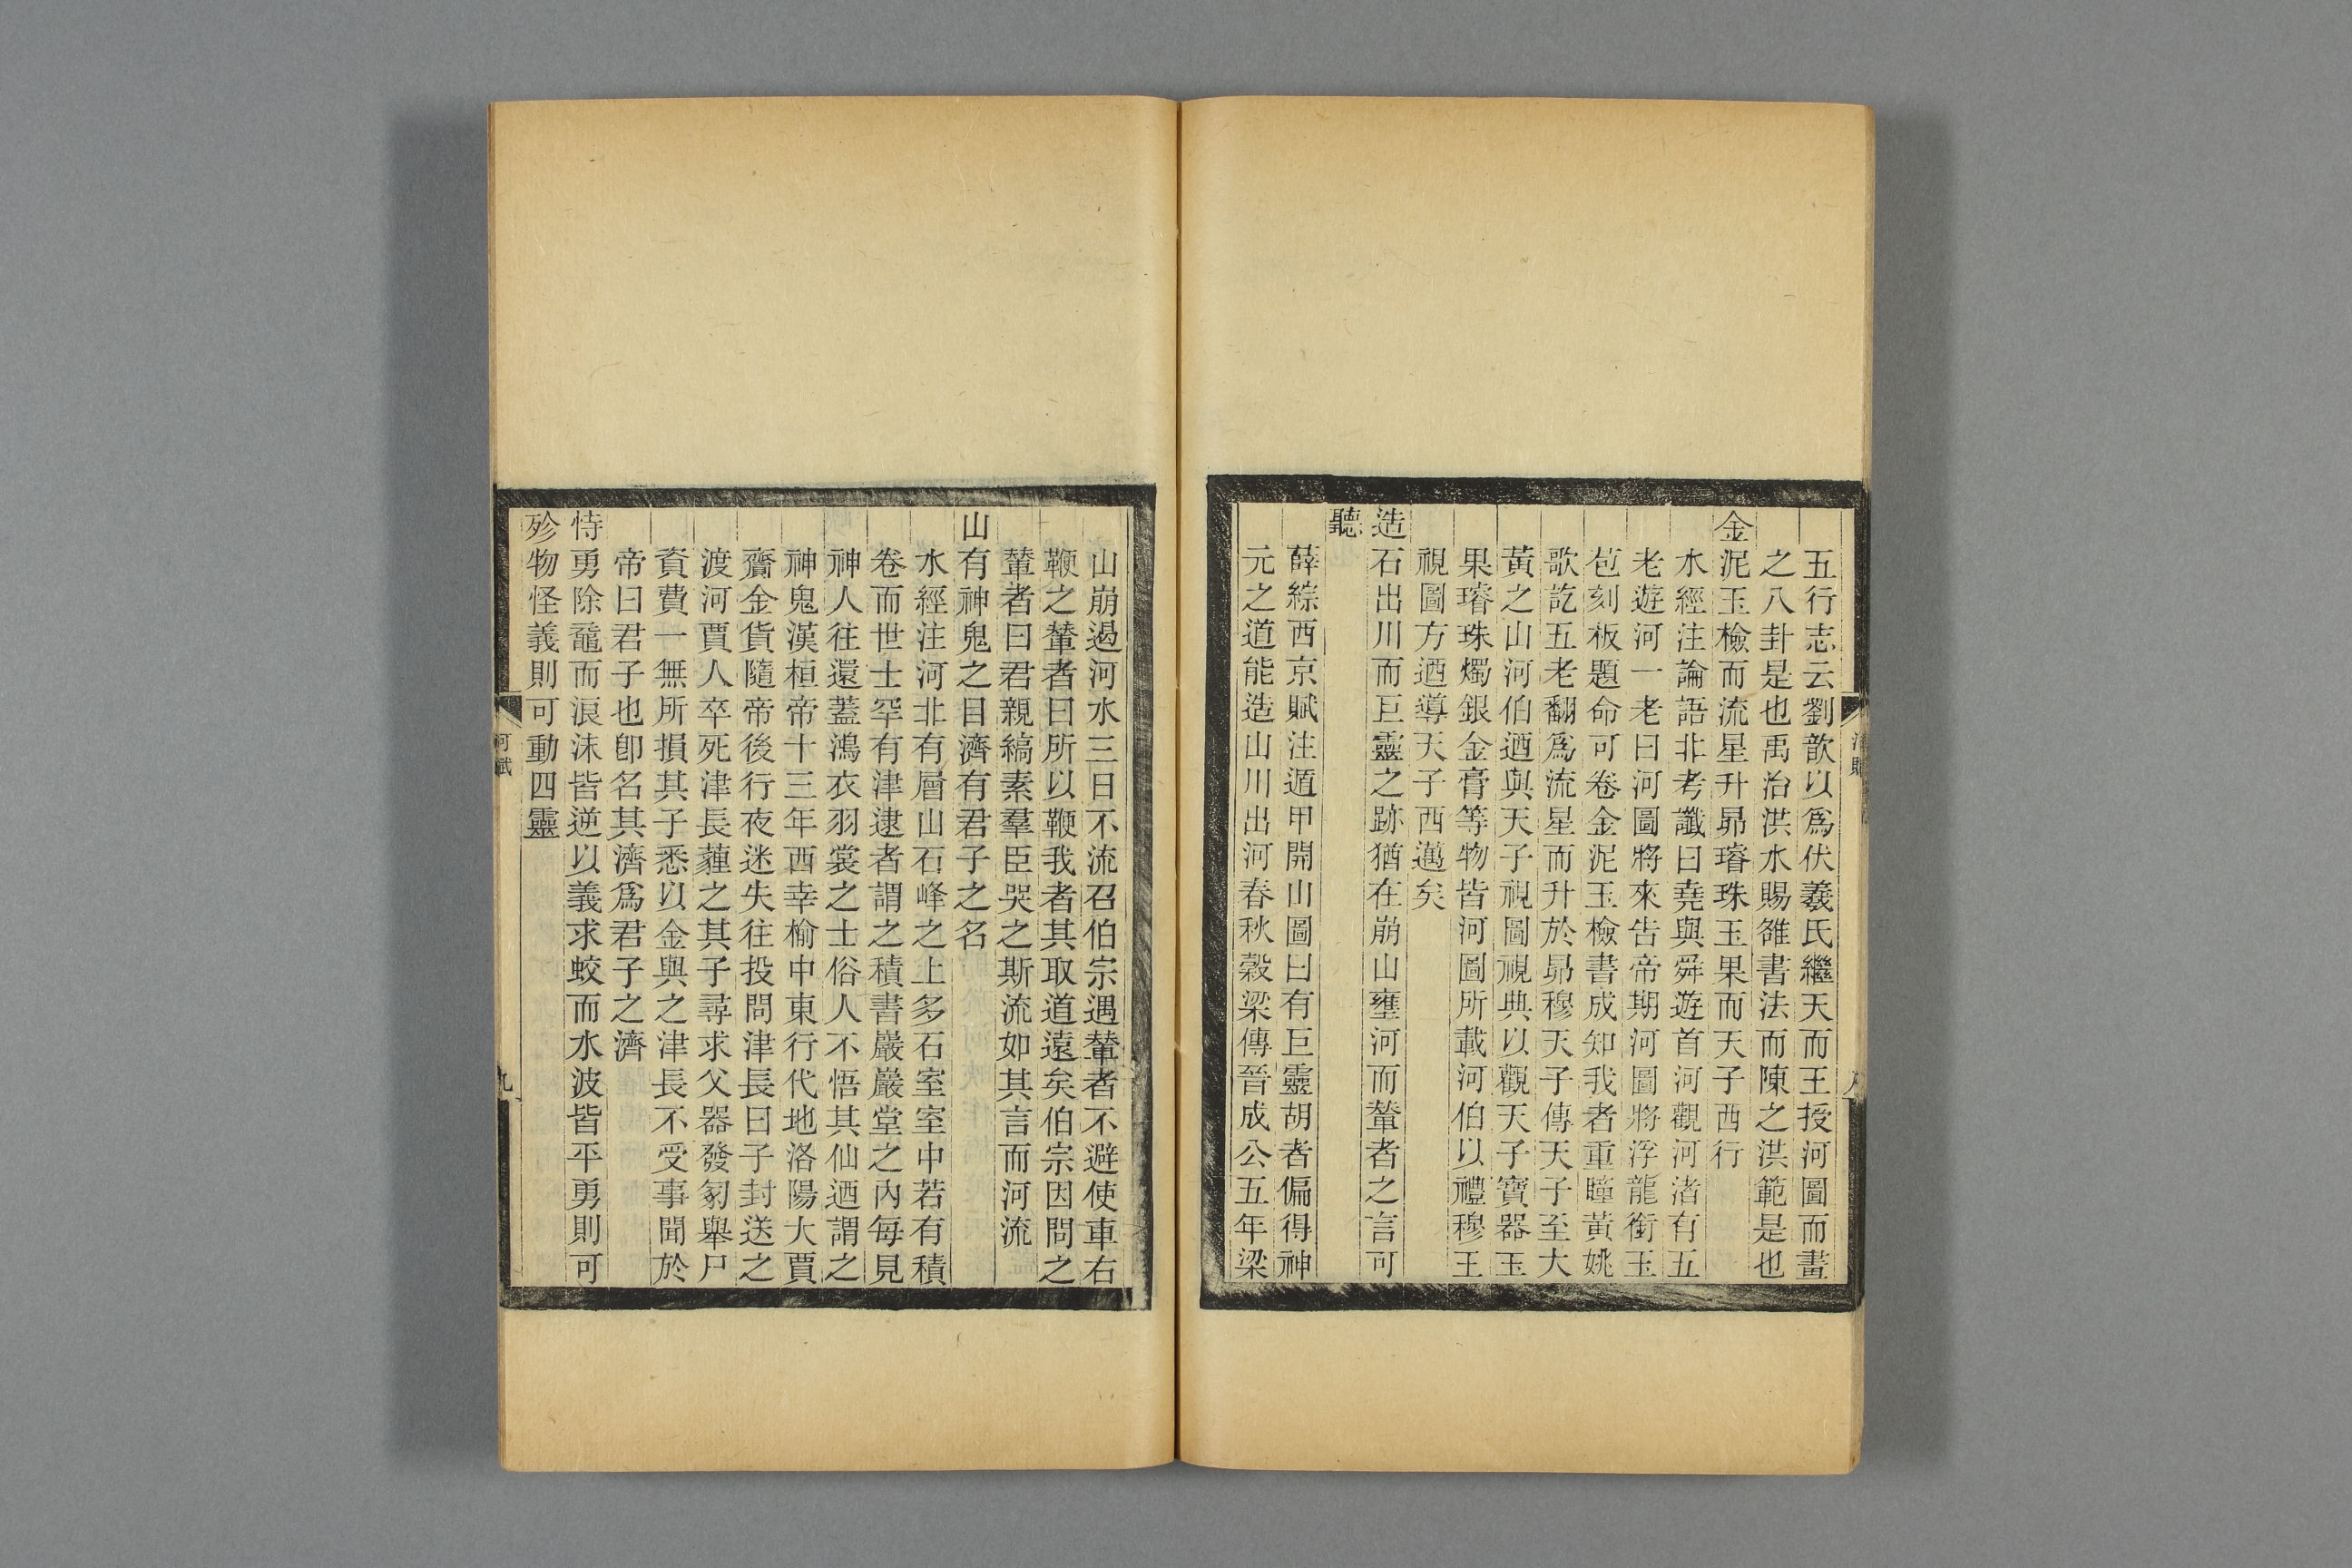 五行志云劉歆以爲伏羲氏繼天而王授河圖而畫
之八卦是也禹治洪水賜雒書法而陳之洪範是也
金泥玉檢而流星升昴璿珠玉果而天子西行
水經注論語非考讖曰堯與舜遊首河觀河渚有五
老遊河一老曰河圖將來告帝期河圖將浮龍銜玉
苞刻板題命可卷金泥玉檢書成知我者重瞳黃姚
歌訖五老翻爲流星而升於昴穆天子傳天子至大
黃之山河伯迺與天子視圖視典以觀天子寶器玉
果璿珠燭銀金膏等物皆河圖所載河伯以禮穆王
視圖方迺導天子西邁矣
造石出川而巨靈之跡猶在崩山壅河而輦者之言可
聽
薛綜西京賦注遁甲開山圖曰有巨靈胡者偏得神
元之道能造山川出河春秋穀梁傳晉成公五年梁
河賦
山崩遏河水三日不流召伯宗遇輦者不避使車右
鞭之輦者曰所以鞭我者其取道遠矣伯宗因問之
輦者曰君親縞素羣臣哭之斯流如其言而河流
山有神鬼之目濟有君子之名
水經注河北有層山石峰之上多石室室中若有積
卷而世士罕有津逮者謂之積書巖巖堂之內每見
神人往還蓋鴻衣羽裳之士俗人不悟其仙迺謂之
神鬼漢桓帝十三年西幸榆中東行代地洛陽大賈
齎金貨隨帝後行夜迷失往投問津長曰子封送之
渡河賈人卒死津長薶之其子尋求父器發冢舉尸
資費一無所損其子悉以金與之津長不受事聞於
帝曰君子也卽名其濟爲君子之濟
恃勇除黿而浪沫皆逆以義求蛟而水波皆平勇則可
殄物怪義則可動四靈
河賦
九